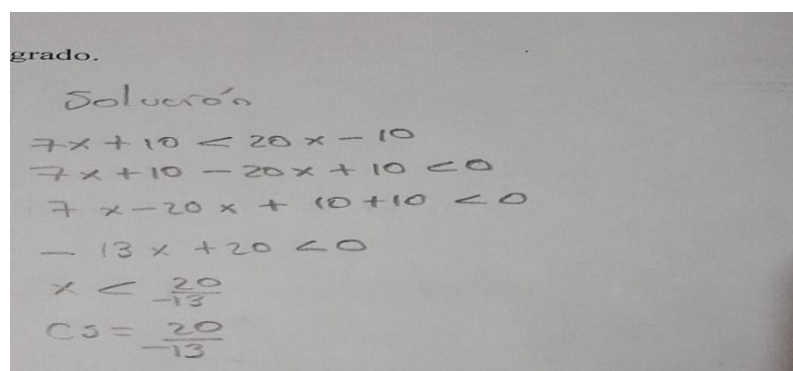 grado.
Solución
7x + 10 < 20x - 10
7x + 10 - 20x + 10 < 0
7x - 20x + 10 + 10 < 0
- 13x + 20 < 0
x < 20/-13
CS = 20/-13